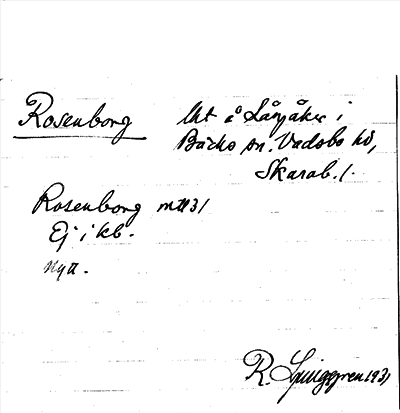 Rosenborg
Lht å Långåker i
Bäcks sn. Vadsbo hd,
Skarab. l.
Rosenborg mtl 31
Ej i kb.
Nytt.
R. Ljunggren 1931